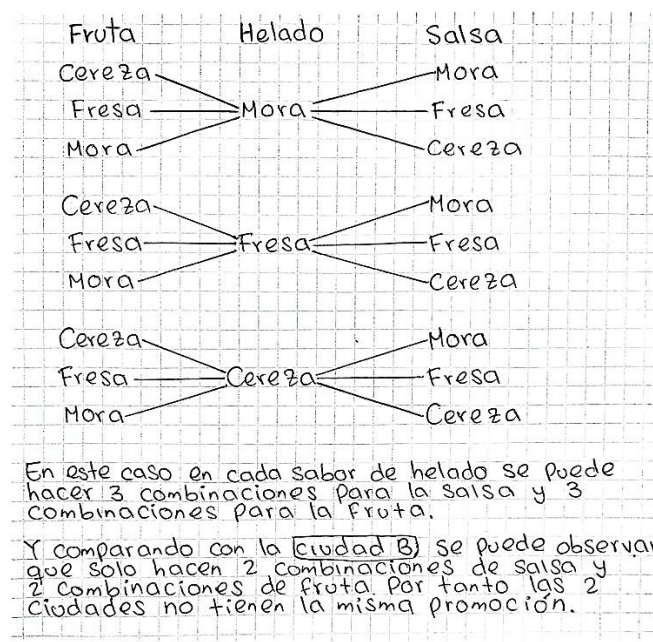 Fruta Helado Salsa
Cereza Mora
Fresa Mora Fresa
Mora Cereza
Cereza Mora
Fresa Fresa Fresa
Mora Cereza
Cereza Mora
Fresa Cereza Fresa
Mora Cereza
En este caso en cada sabor de helado se puede
hacer 3 combinaciones para la salsa y 3
combinaciones para la Fruta.
Y comparando con la ciudad B) se puede observar
que solo hacen 2 combinaciones de salsa y
2 combinaciones de fruta por tanto las 2
ciudades no tienen la misma promoción.